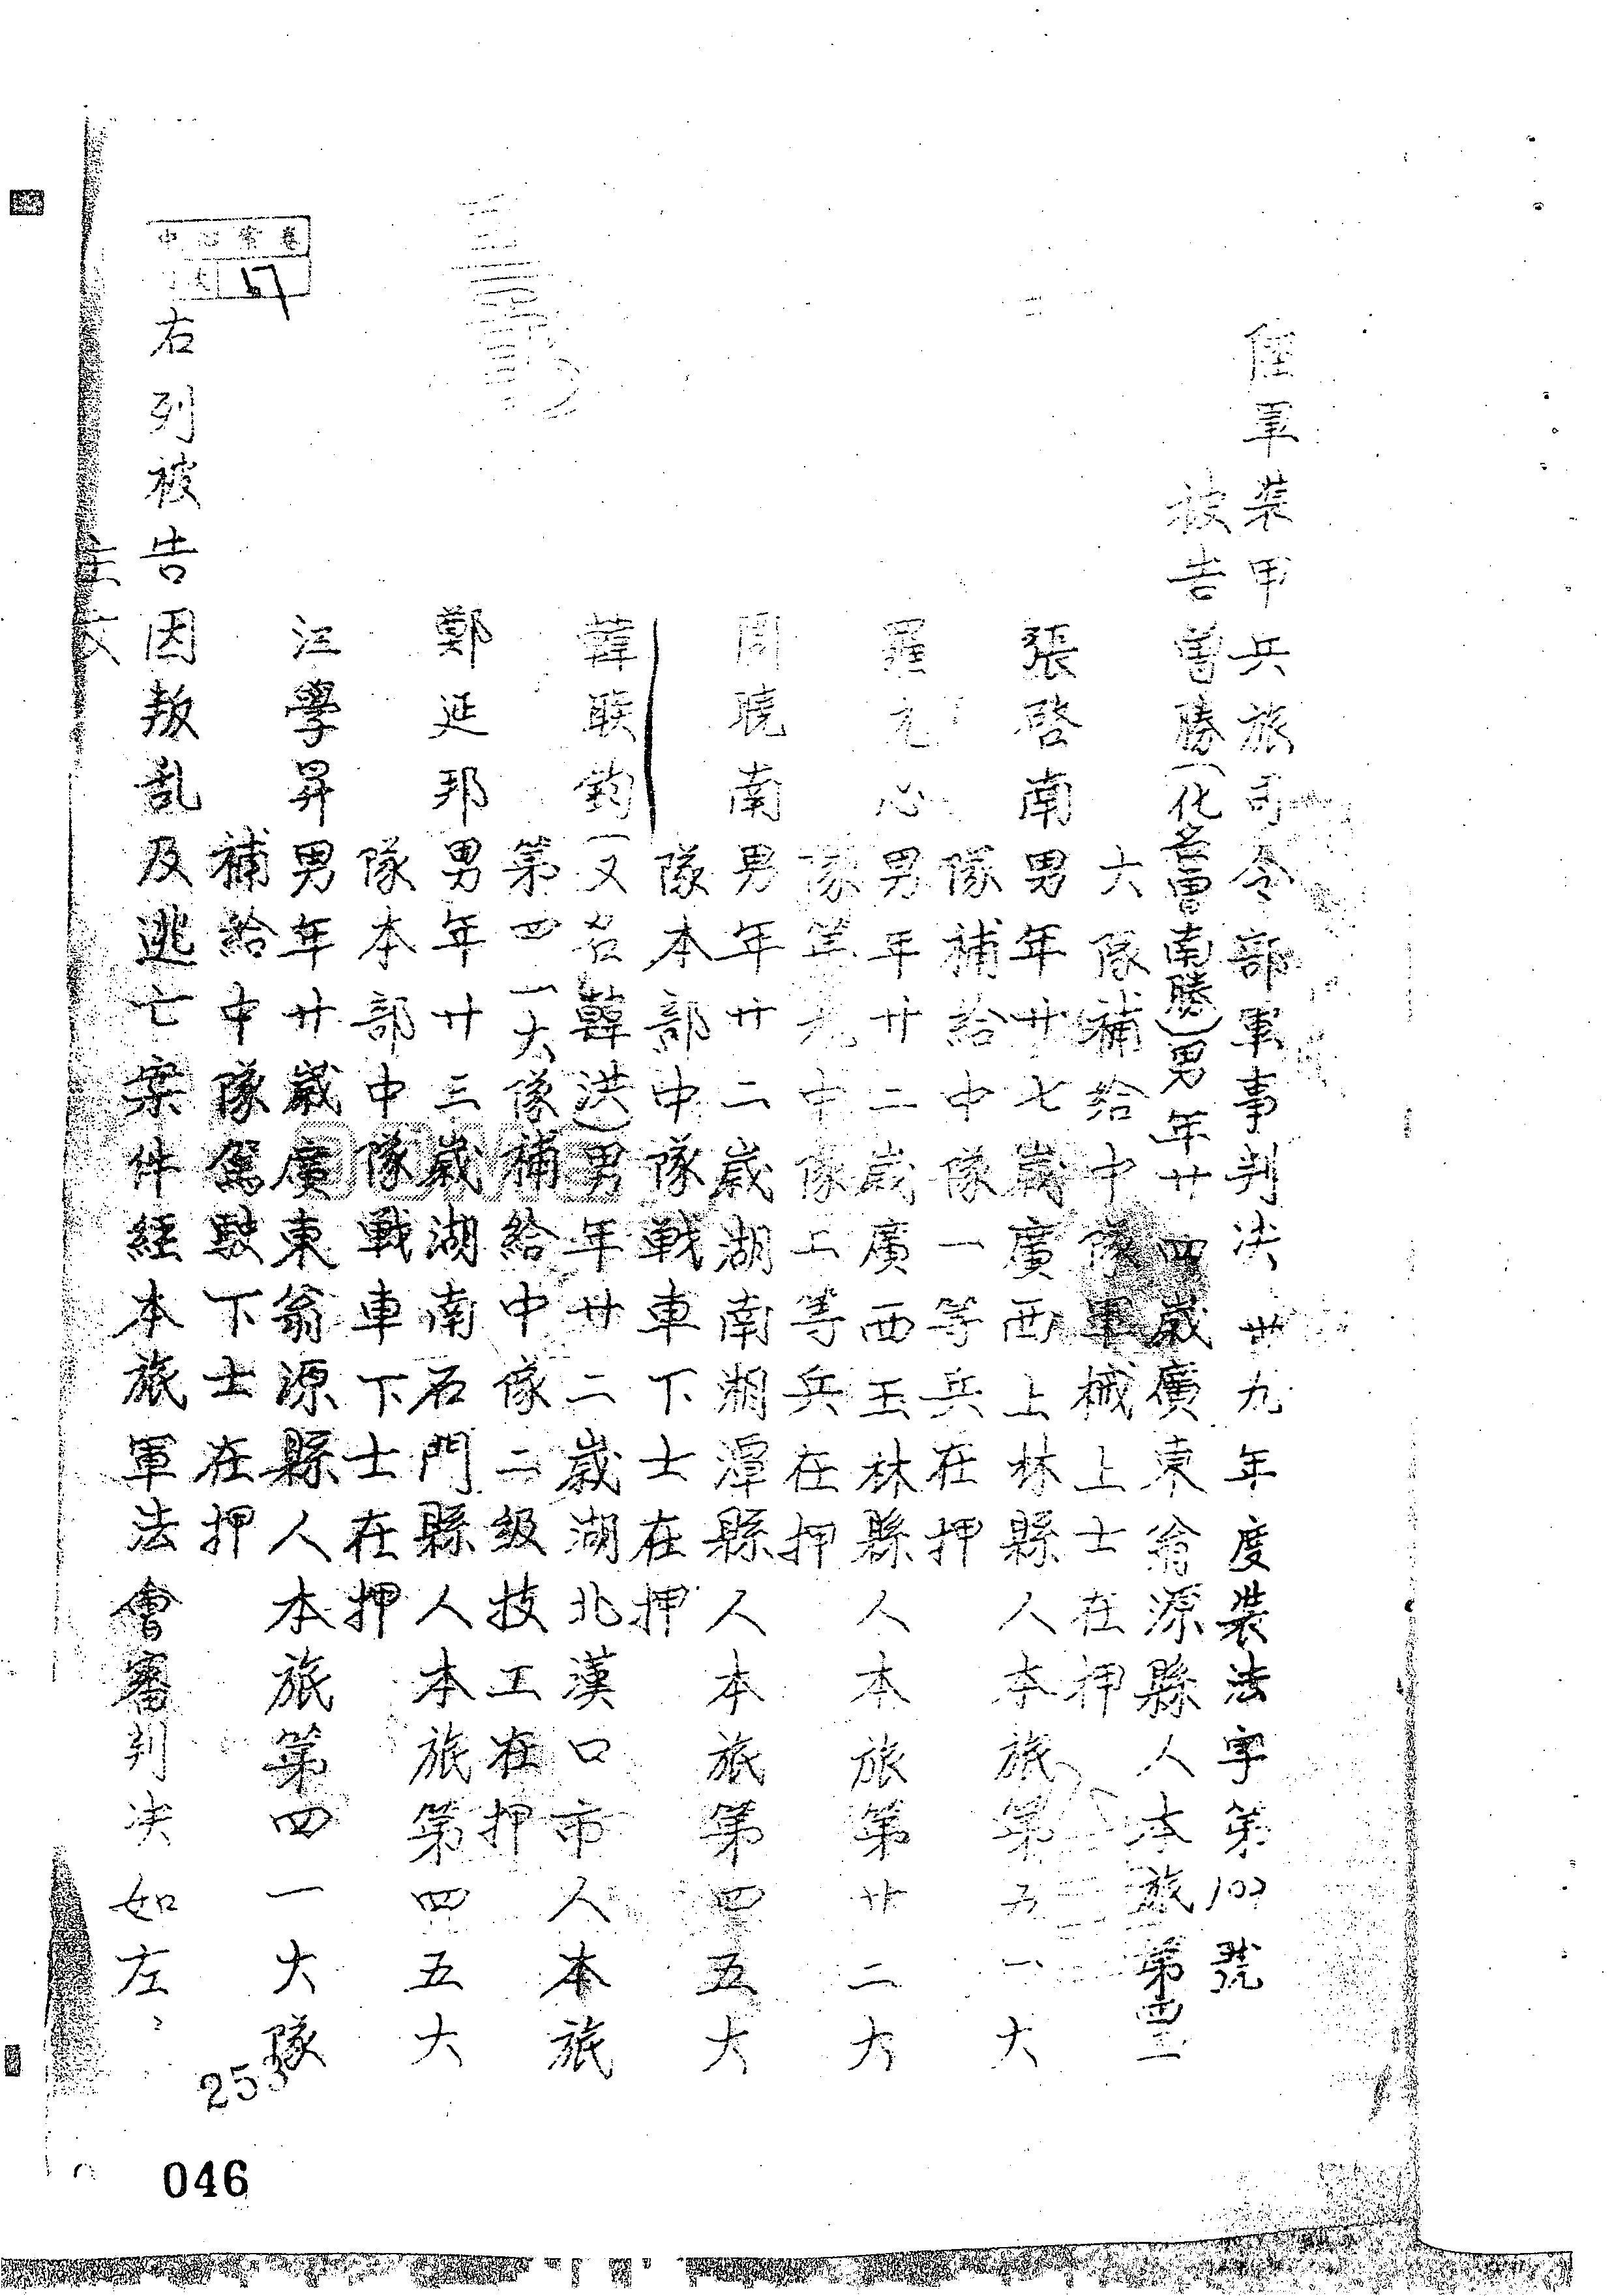 陸軍装甲兵旅司令部軍事判決卅九年度裝法字第102號
被告曾勝(化名曾南勝)男年廿四歲廣東翁源縣人本旅第四一
大隊補給中隊軍械上士在押
張啓南男年廿七歲廣西上林縣人本旅第五一大
隊補給中隊一等兵在押
羅元心男年廿二歲廣西玉林縣人本旅第廿二大
隊第九中隊上等兵在押
周曉南男年廿二歲湖南湘潭縣人本旅第四五大
隊本部中隊戰車下士在押
韓联鈞(又名韓洪)男年廿二歲湖北漢口市人本旅
第四一大隊補給中隊二級技工在押
鄭延邦男年廿三歲湖南石門縣人本旅第四五大
隊本部中隊戰車下士在押
江學昇男年廿歲廣東翁源縣人本旅第四一大隊
補給中隊駕駛下士在押
右列被告因叛乱及逃亡案件經本旅軍法會審判决如左:
主文
中心案卷
17
253
046